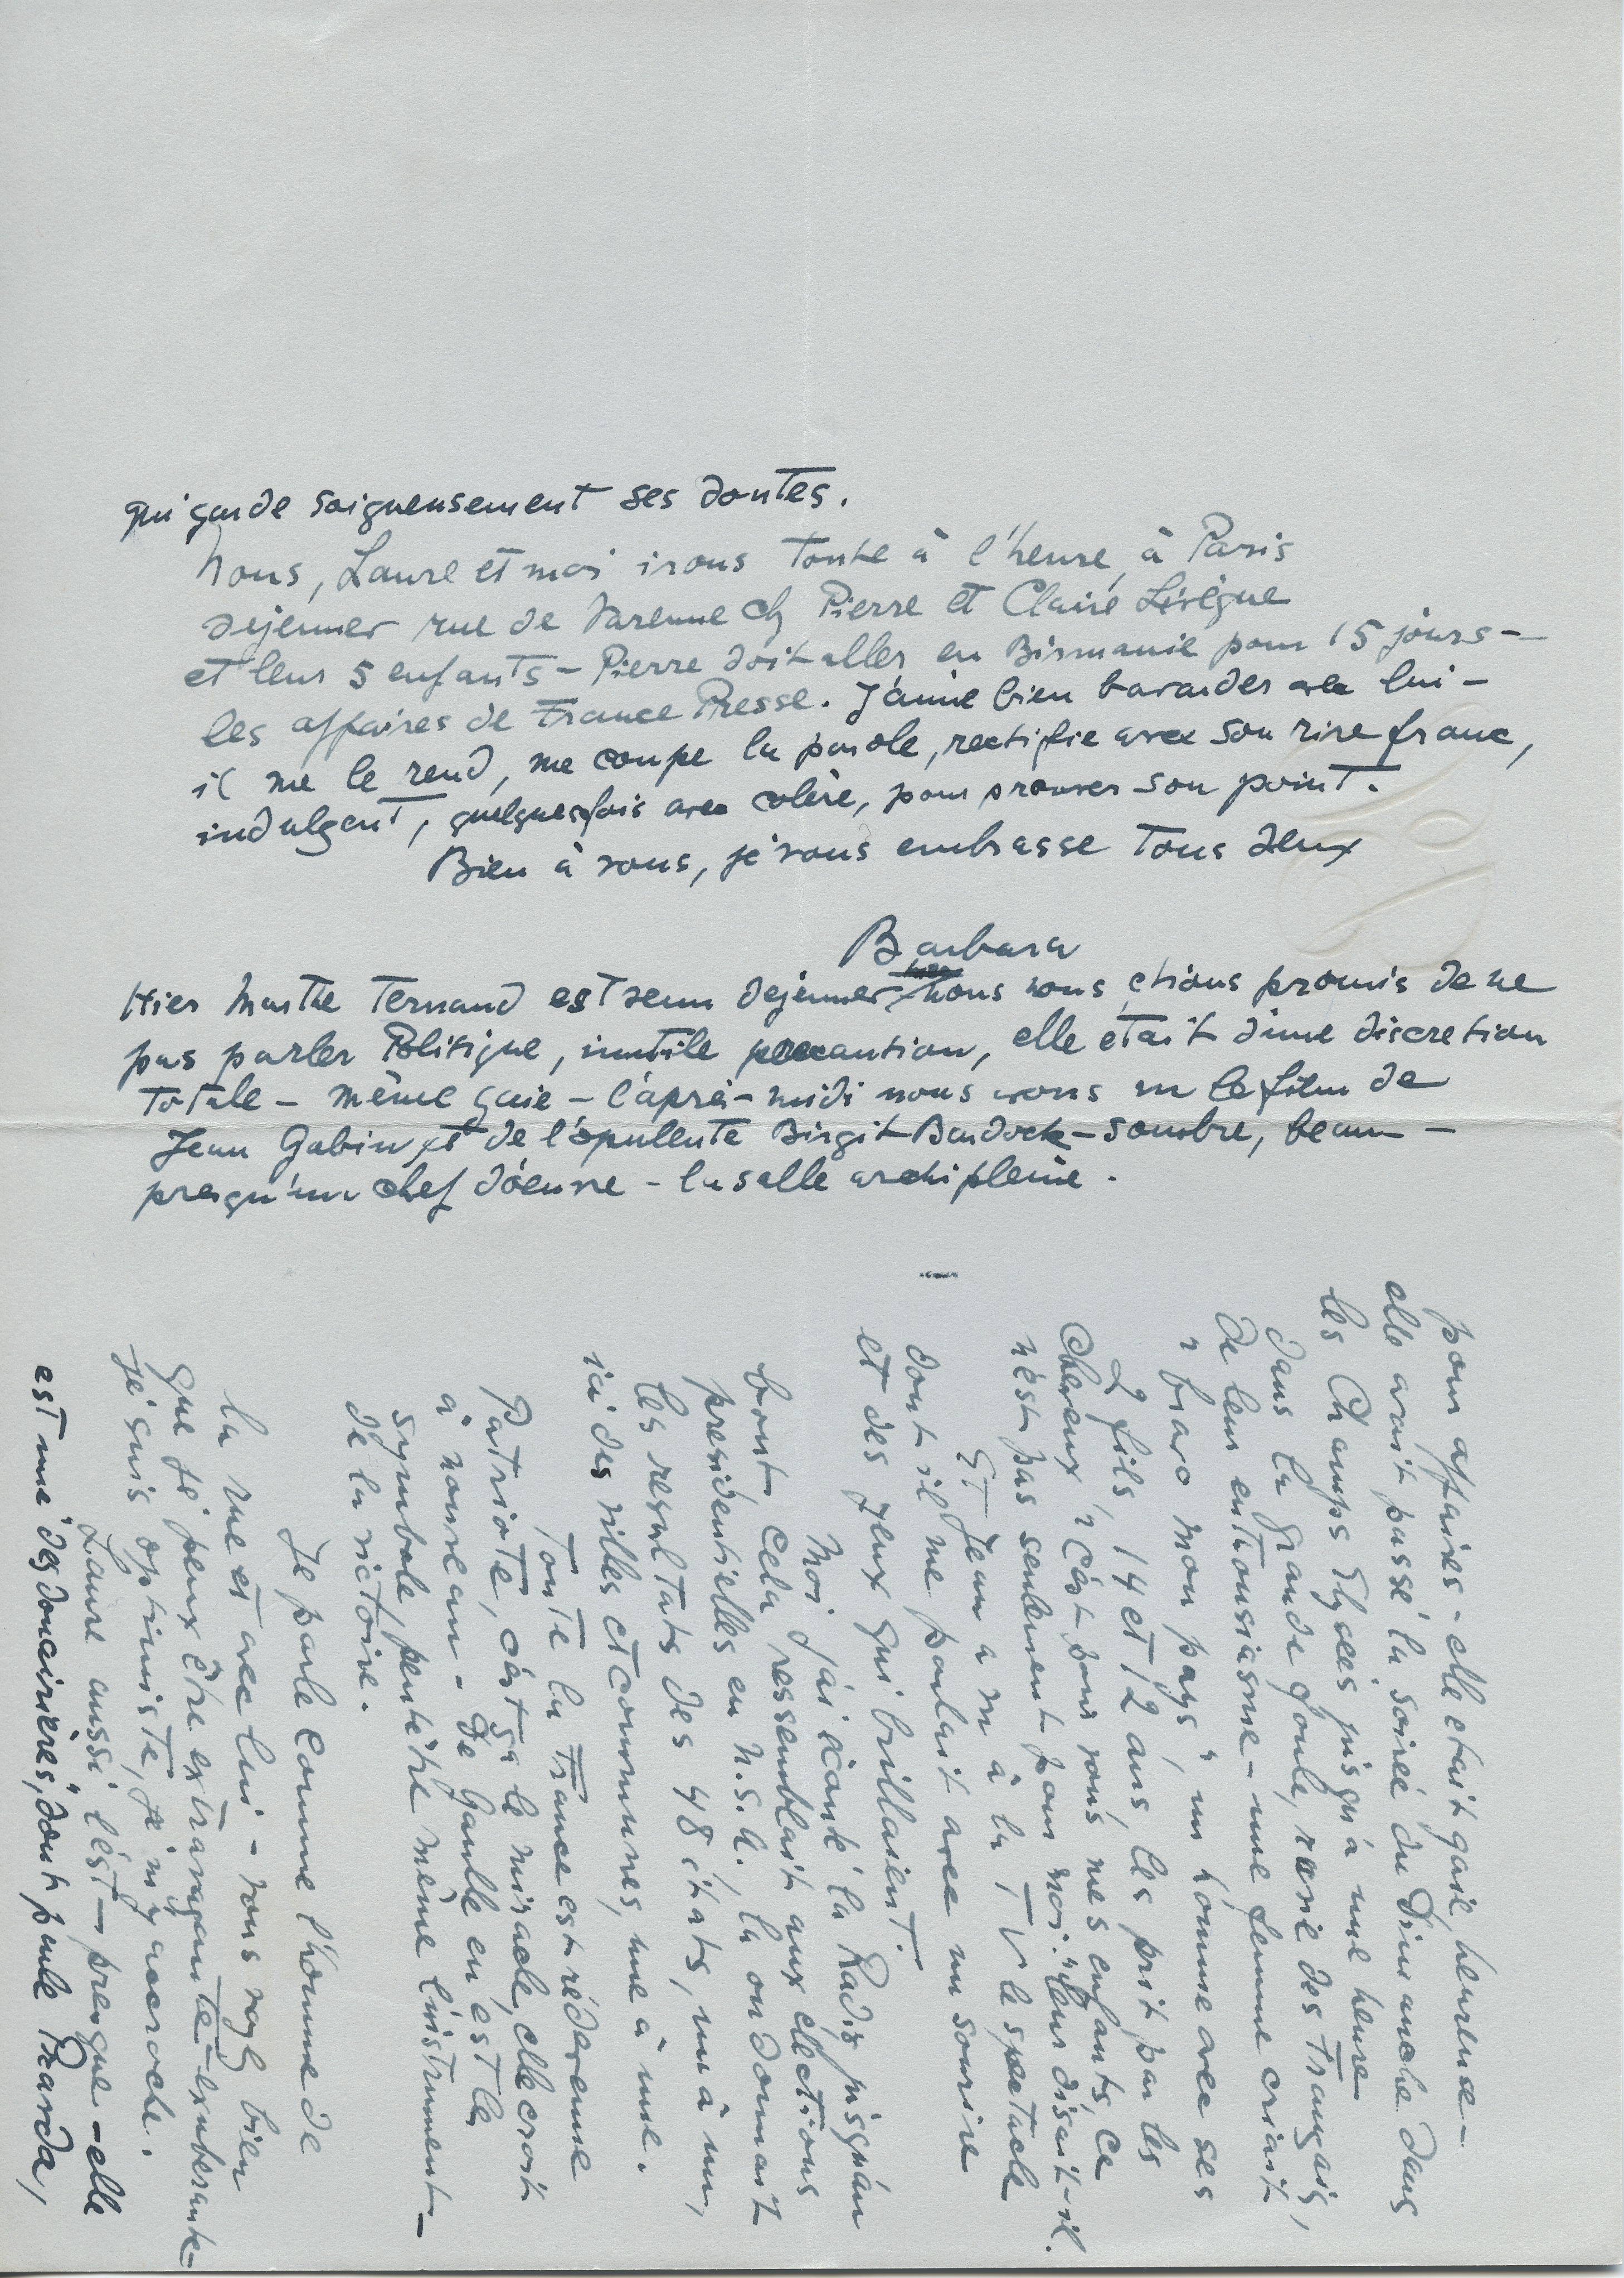 qui garde soigneusement ses doutes.
Nous, Laure et moi irons toute à l'heure, à Paris
dejeuner rue de Varenne chz Pierre et Claire Lévêque
et leur 5 enfants - Pierre doit aller en Birmanie pour 15 jours -
les affaires de France Presse. J'aime bien bavarder avec lui -
il me le rend, me coupe la parole, rectifie avec son rire franc,
indulgent, quelquesfois avec colère, pour prouver son point.
Bien à vous, je vous embrasse tous deux
Barbara
Hier Marthe Fernand est venu dejeuner nous nous étions promis de ne
pas parler Politique, inutile precaution, elle était d'une discretion
totale - même gaie - l'après-midi nous avons vu le film de
Jean Gabin et de l'opulente Birgit Bardock - sombre, beau -
presqu'un chef d'oeuvre - la salle archi pleine.
pour affaires - elle etait gaie, heureuse -
elle avait passé la soirée du Dimanche dans
les Champs Elysées jusqu'à une heure
dans la grande foule, ravie des Français,
de leur enthousiasme - une femme criait
"bravo mon pays", un homme avec ses
2 fils 14 et 12 ans, les prit par les
cheveux "c'est pour vous mes enfants, ce
n'est pas seulement pour moi." leur disait-il.
Et Jean a vu à la TV le spectacle
dont il me parlait avec un sourire
et des yeux qui brillaient.
Moi j'ai écouté la Radio jusqu'au
bout cela ressemblait aux élections
presidentielles en U.S.A. la on donnait
les resultats des 48 états, un à un,
ici des villes et communes, une à une.
Toute la France est rédevenue
Patriote, c'est ça le miracle, elle croit
à nouveau - de Gaulle en est le
symbole, peutêtre même l'instrument -
de la victoire.
Je parle comme l'homme de
la rue et avec lui - vous voyz bien
que je peux être extravagante - exuberante -
je suis optimiste, je m'y accroche.
Laure aussi l'est - presque - elle
est une "des doncières", dont parle Pravda,